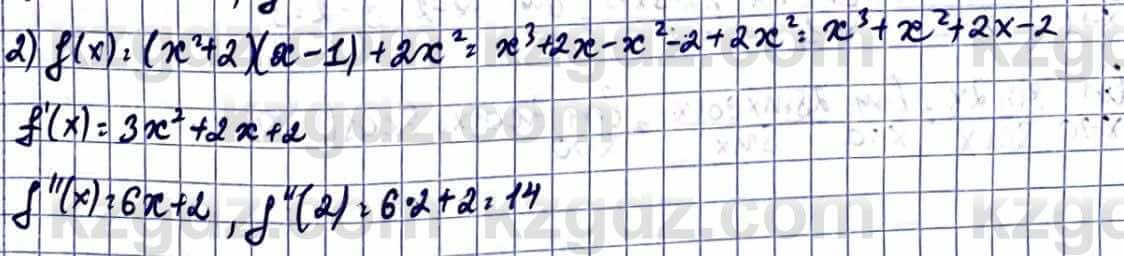 2) f(x) = (x²+2)(x-1)+2x² = x³+2x-x²-2+2x² = x³+x²+2x-2
f'(x) = 3x²+2x+2
f''(x) = 6x+2, f''(2) = 6·2+2 = 14